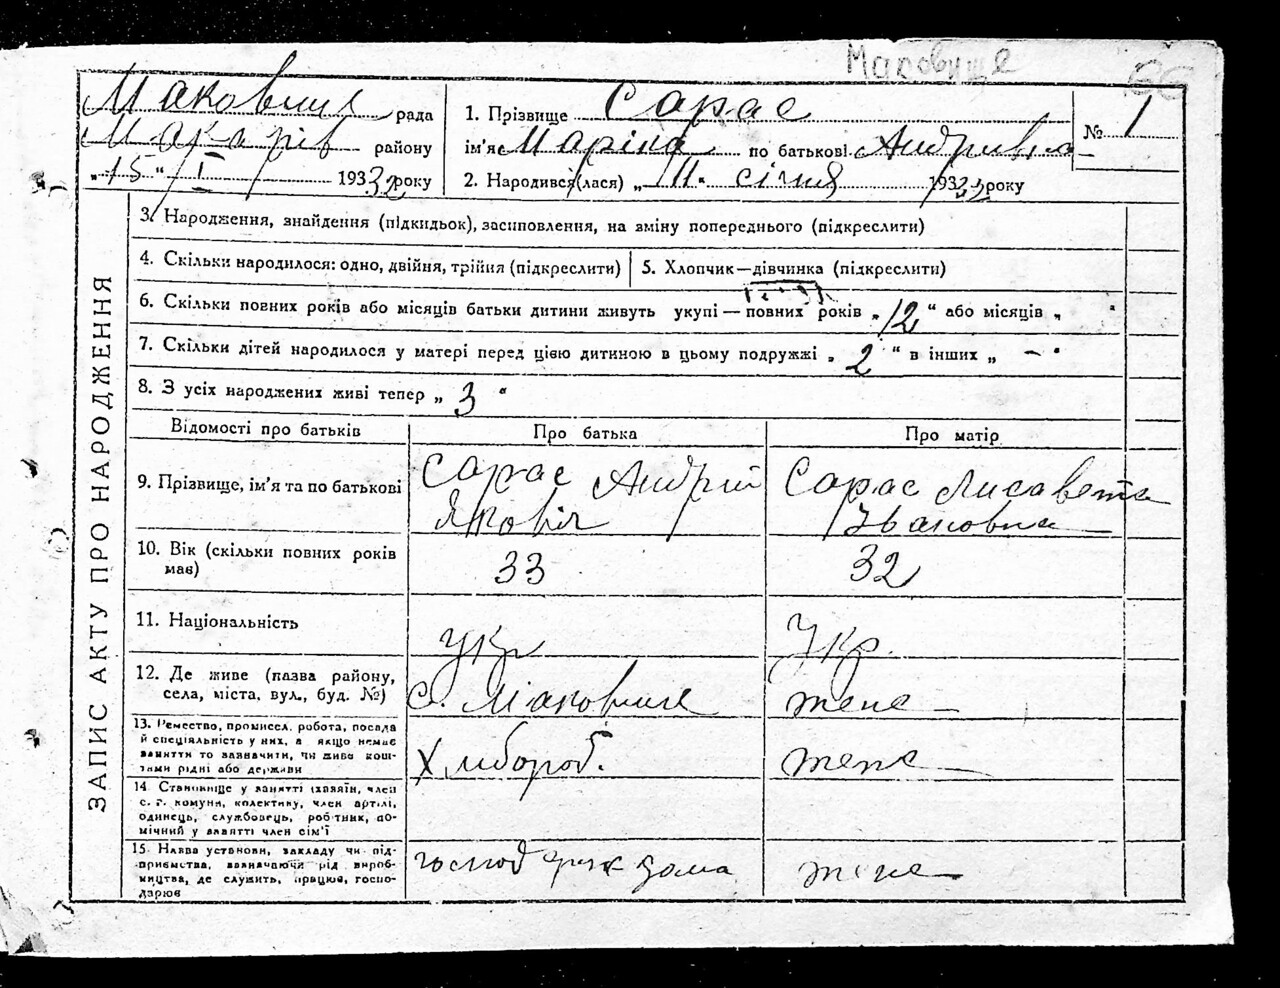 Маковище
66
Маковище рада
Макарів району
„ 15 “ I 1932 року
1. Прізвище Сарас
ім'я Маріна по батькові Андриївна
2. Народився(лася) „ 11 “ січня 1932 року
№ 1
ЗАПИС АКТУ ПРО НАРОДЖЕННЯ
3. Народження, знайдення (підкидьок), засиповлення, на зміну попереднього (підкреслити)
4. Скільки народилося: одно, двійня, трійня (підкреслити)
5. Хлопчик—дівчинка (підкреслити)
6. Скільки повних років або місяців батьки дитини живуть укупі — повних років „ 12 “ або місяців „ “
7. Скільки дітей народилося у матері перед цією дитиною в цьому подружжі „ 2 “ в інших „ – “
8. З усіх народжених живі тепер „ 3 “
Відомості про батьків
Про батька
Про матір
9. Прізвище, ім'я та по батькові
Сарас Андрій
Яковіч
Сарас Лисавета
Івановна
10. Вік (скільки повних років
має)
33
32
11. Національність
укр
Укр.
12. Де живе (назва району,
села, міста, вул., буд. №)
С. Маковище
теже
13. Ремество, промисел, робота, посада
й спеціяльність у них, а якщо немає
заняття то зазначити, чи живе кош-
тами рідні або держави
Хлібороб.
теже
14. Становище у занятті (хазяїн, член
с.-г. комуни, колективу, член артілі,
одинець, службовець, робітник, до-
мічний у занятті член сім'ї
15. Назва установи, закладу чи під-
приємства, зазначаючи рід вироб-
ництва, де служить, працює, госпо-
дарює
господ дома
теже